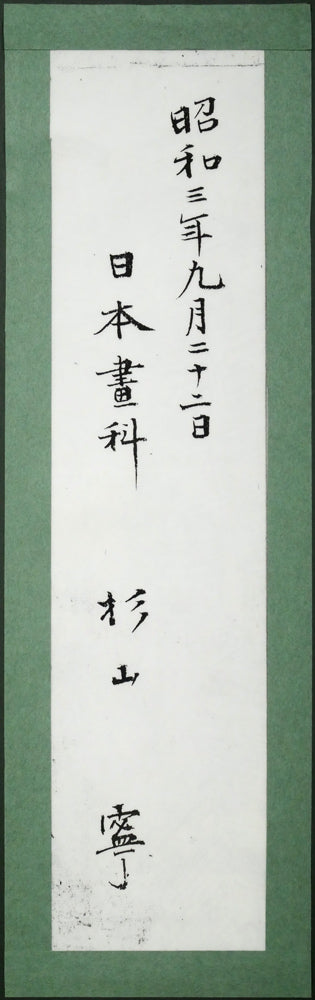 昭和三年九月二十二日
日本畫科 杉山 寧